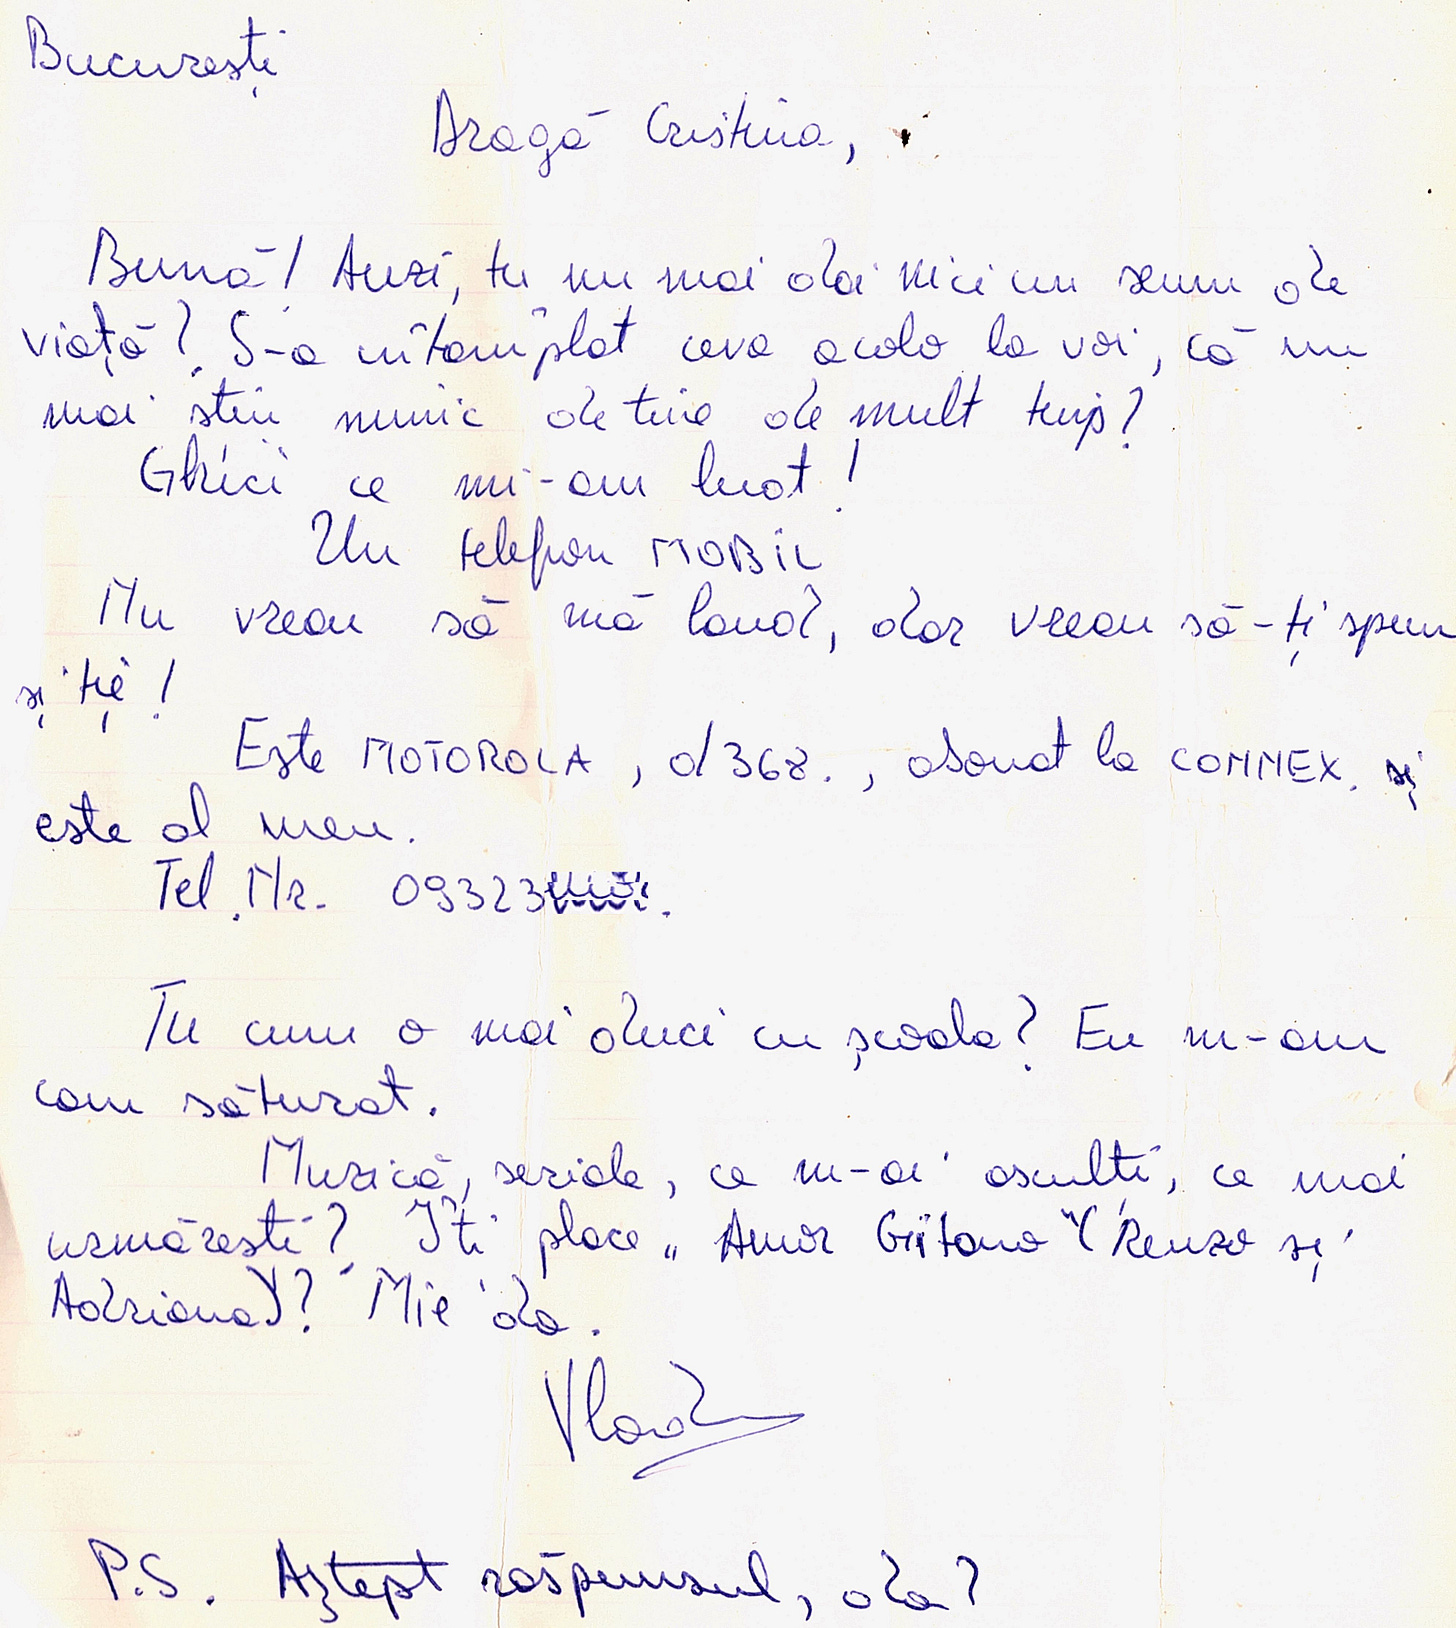 București
Dragă Cristina,
Bună! Auzi, tu nu mai dai nici un semn de
viață? S-a întâmplat ceva acolo la voi, că nu
mai știu nimic de tine de mult timp?
Ghici ce mi-am luat!
Un telefon MOBIL
Nu vreau să mă laud, dar vreau să-ți spun
și ție!
Este MOTOROLA, d368., abonat la CONNEX. și
este al meu.
Tel. Nr. 09323
Tu cum o mai duci cu școala? Eu m-am
cam săturat.
Muzică, seriale, ce m-ai asculti, ce mai
urmărești? Îți place „Amor Gitano" (Renzo și
Adriana)? Mie da.
Vlad
P.S. Aștept raspunsul, da?